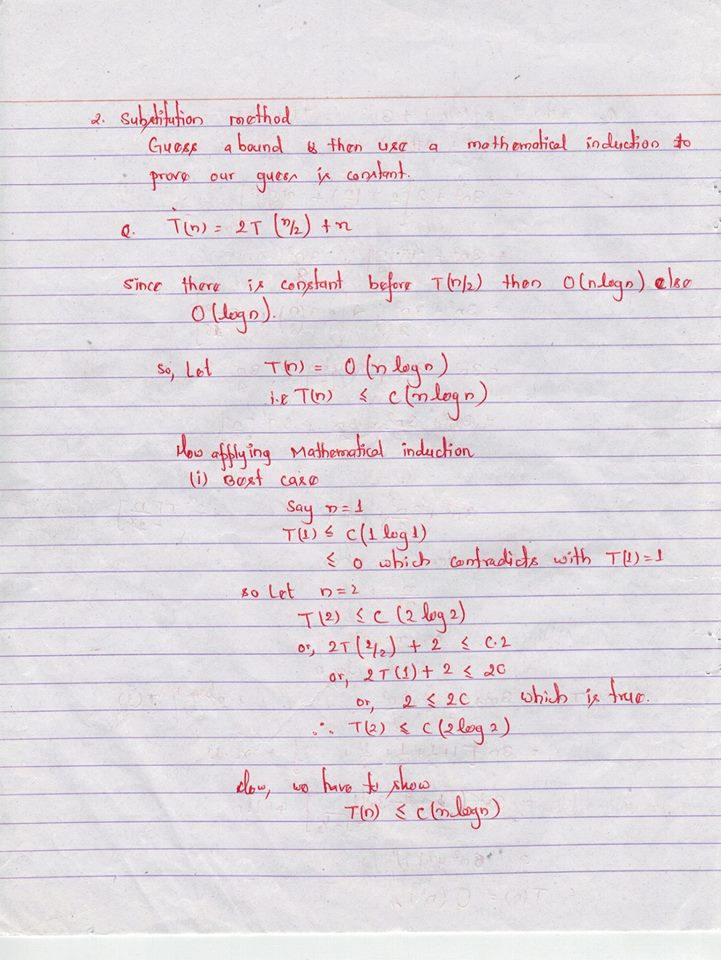 2. Substitution method
Guess a bound & then use a mathematical induction to
prove our guess is constant.
Q. T(n) = 2T (n/2) + n
Since there is constant before T(n/2) then O(nlogn) else
O(logn).
So, Let T(n) = O(nlogn)
i.e T(n) ≤ c(nlogn)
Now applying Mathematical induction
(i) Best case
Say n=1
T(1) ≤ c(1 log1)
≤ 0 which contradicts with T(1)=1
so Let n=2
T(2) ≤ c (2 log2)
or, 2T(2/2) + 2 ≤ c.2
or, 2T(1) + 2 ≤ 2c
or, 2 ≤ 2c which is true.
∴ T(2) ≤ c(2log2)
Now, we have to show
T(n) ≤ c(nlogn)